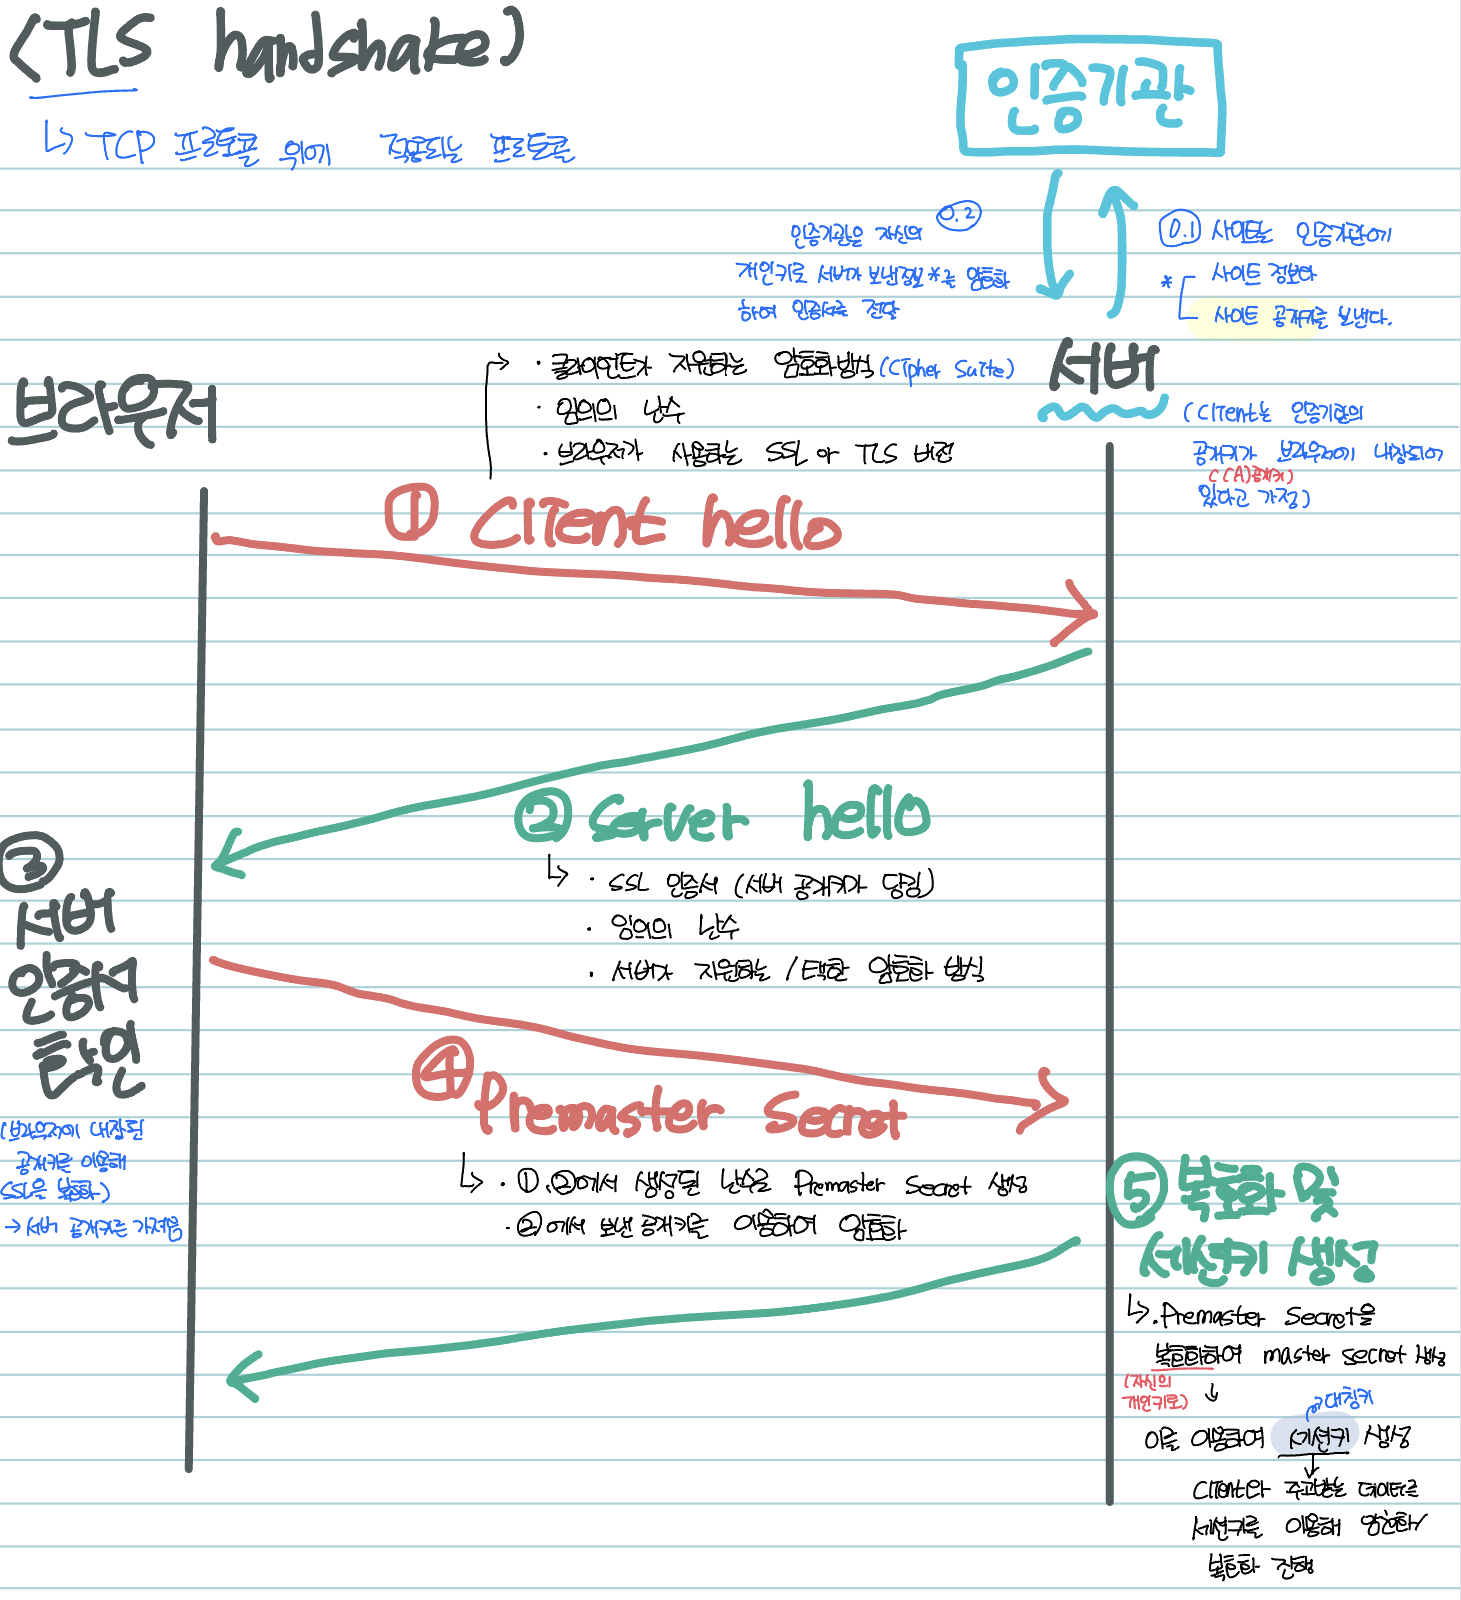 (TLS handshake)
↳ TCP 프로토콜 위에 적용되는 프로토콜
인증기관
0.2
인증기관은 자신의
개인키로 서버가 보낸정보*를 암호화
하여 인증서를 전달
0.1 사이트는 인증기관에
* 사이트 정보와
사이트 공개키를 보낸다.
브라우저
서버
· 클라이언트가 지원하는 암호화방식 (Cipher Suite)
· 임의의 난수
· 브라우저가 사용하는 SSL or TLS 버전
(Client는 인증기관의
공개키가 브라우저에 내장되어
((CA)공개키)
있다고 가정)
① Client hello
② Server hello
↳ · SSL 인증서 (서버 공개키가 담김)
· 임의의 난수
· 서버가 지원하는 / 택한 암호화 방식
③
서버
인증서
확인
(브라우저에 내장된
공개키를 이용해
SSL을 복호화)
→ 서버 공개키를 가져옴
④ Premaster Secret
↳ · ①,②에서 생성된 난수로 Premaster Secret 생성
· ②에서 보낸 공개키를 이용하여 암호화
⑤ 복호화 및
세션키 생성
↳ · Premaster Secret을
복호화하여 master secret 생성
(자신의
개인키로)
↓
대칭키
이를 이용하여 세션키 생성
Client와 주고받는 데이터를
세션키를 이용해 암호화/
복호화 진행